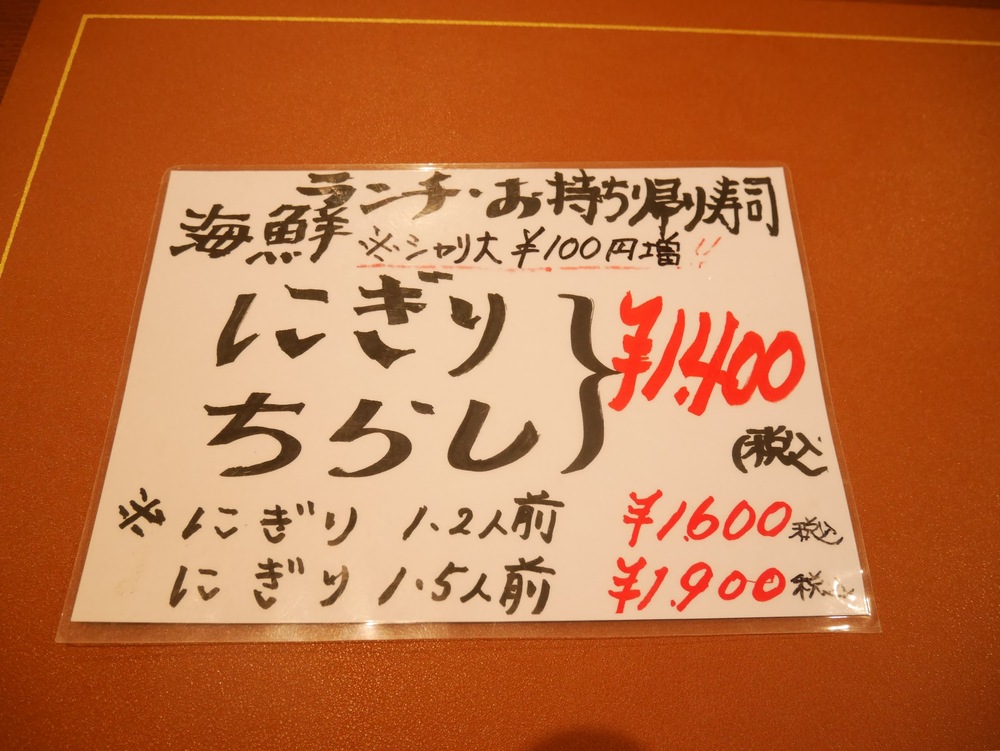 ランチ・お持ち帰り寿司
海鮮 ※シャリ大 ¥100円増!!
にぎり
ちらし
} ¥1,400
(税込
※ にぎり 1.2人前 ¥1,600 税込
にぎり 1.5人前 ¥1,900 税込